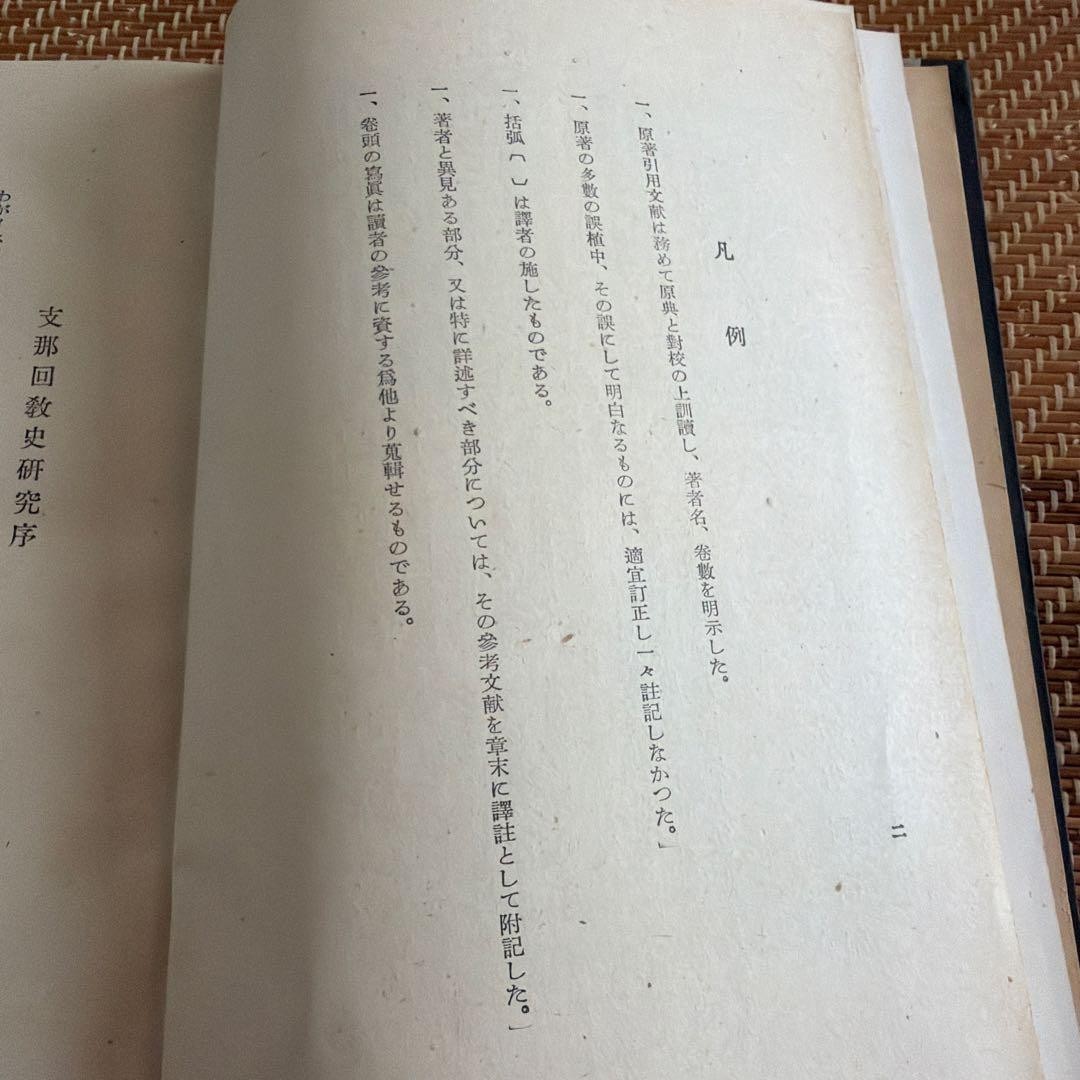 二
凡例
一、原著引用文献は務めて原典と對校の上訓讀し、著者名、卷數を明示した。
一、原著の多數の誤植中、その誤にして明白なるものには、適宜訂正し一々註記しなかつた。」
一、括弧〔 〕は譯者の施したものである。
一、著者と異見ある部分、又は特に詳述すべき部分については、その參考文献を章末に譯註として附記した。」
一、卷頭の寫眞は讀者の參考に資する爲他より蒐輯せるものである。
支那回教史研究序